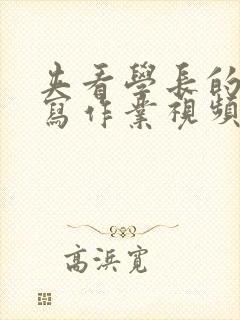 夹看學長的
寫作業視頻
高浜寛